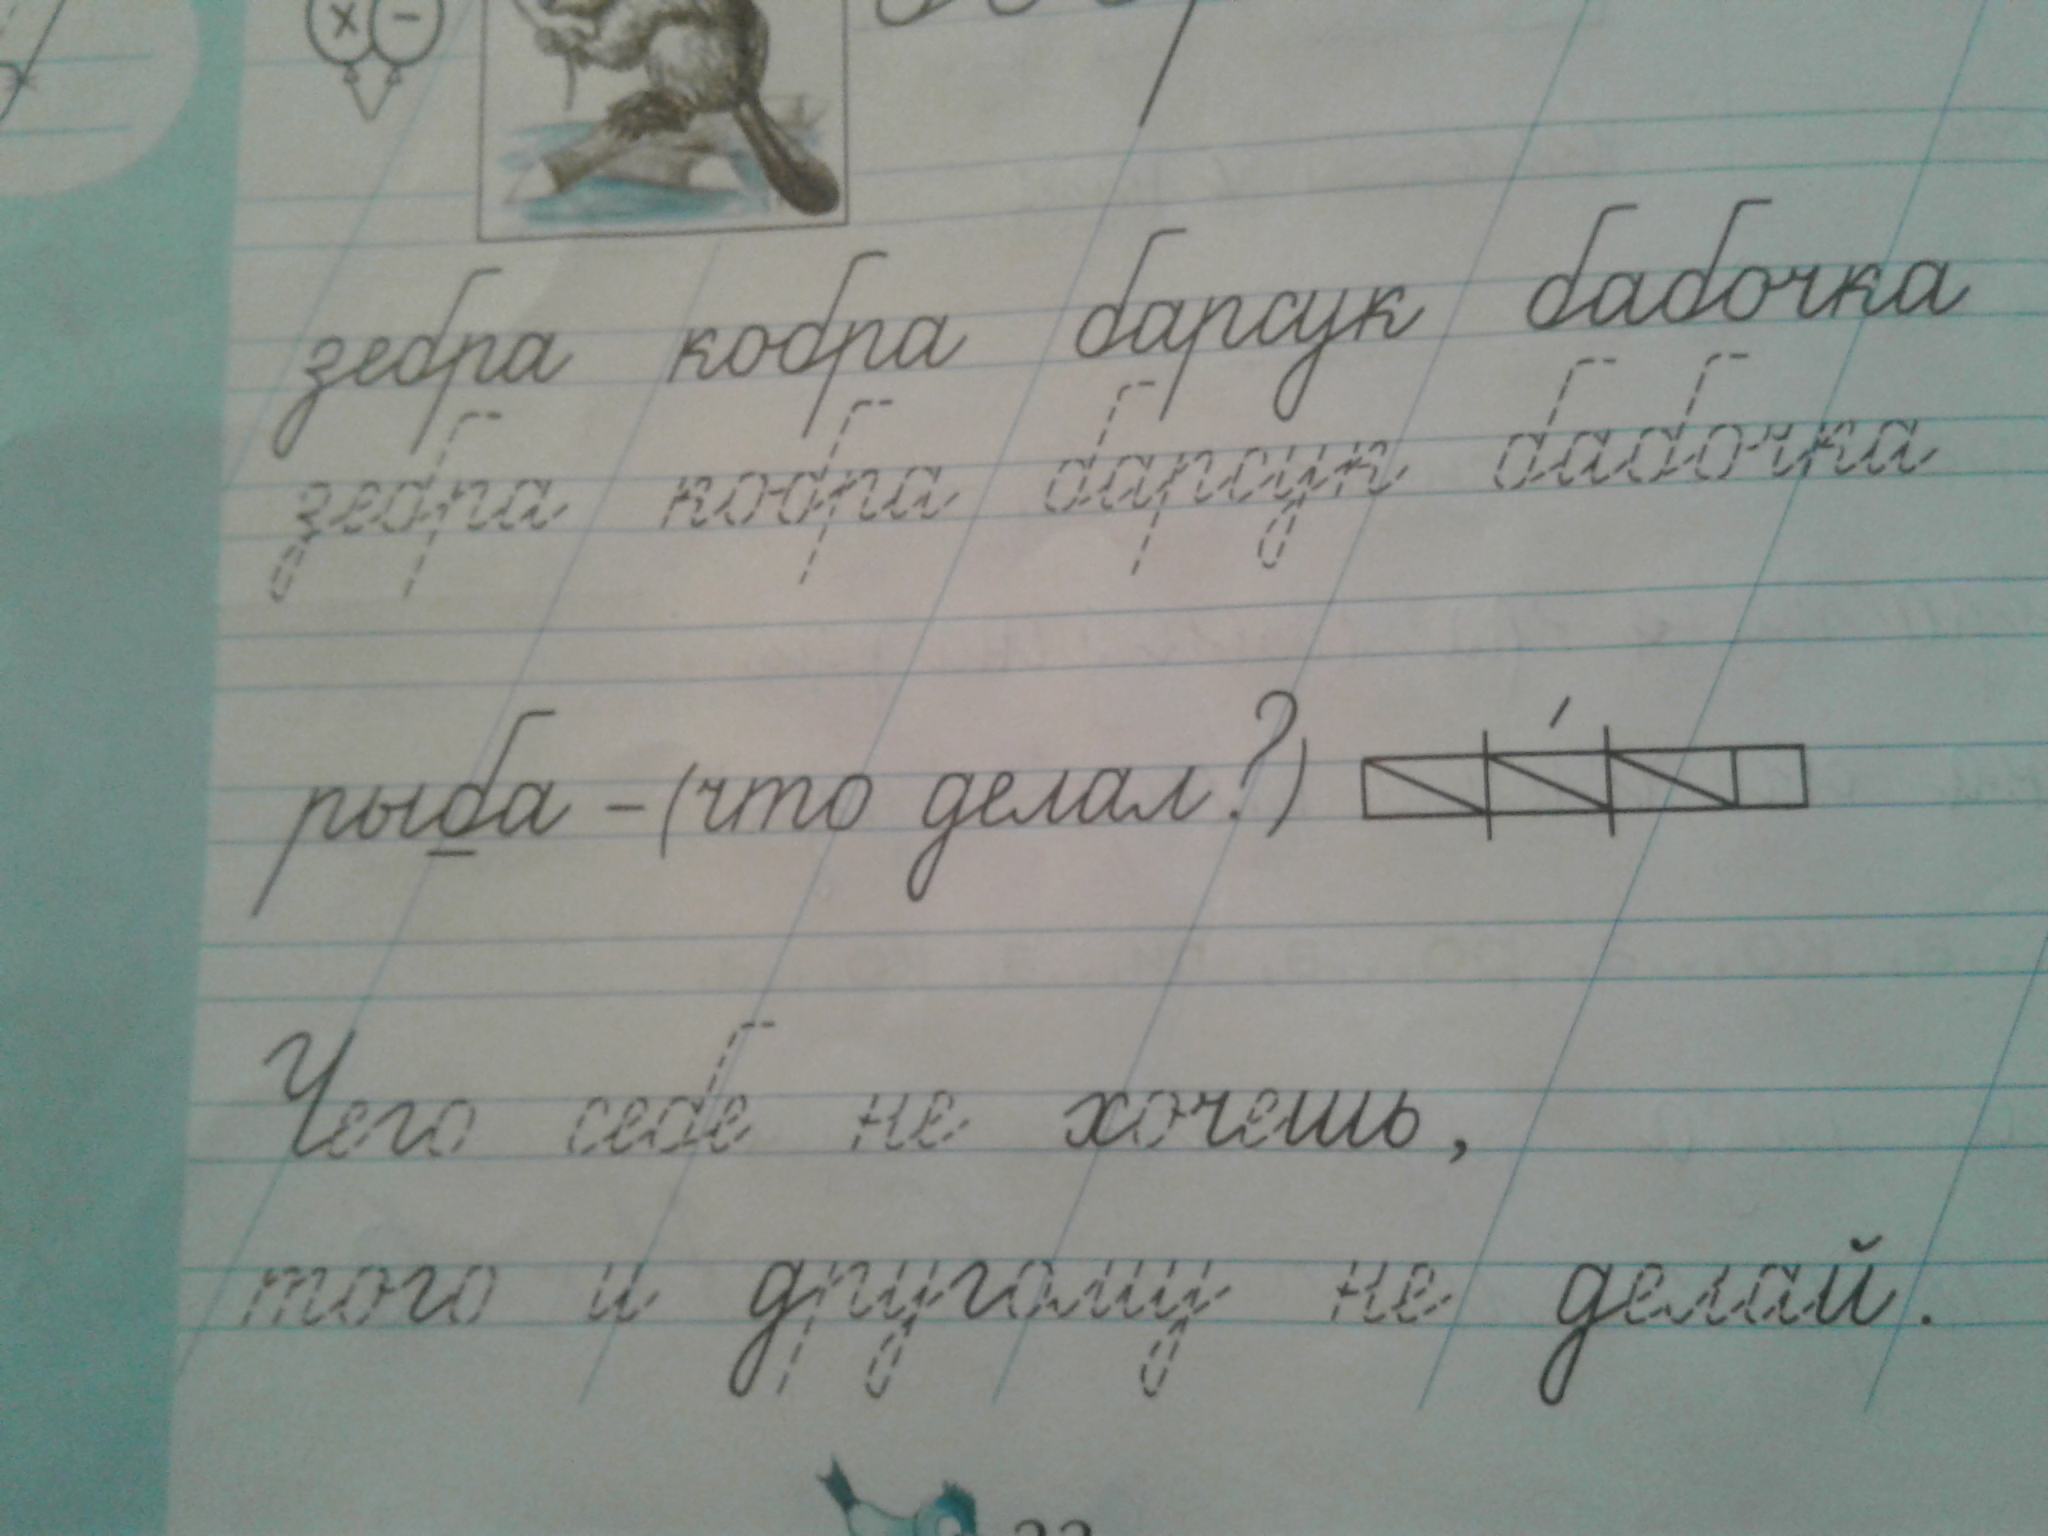 зебра кобра барсук бабочка
зебра кобра барсук бабочка
рыба – (что делал?)
Чего себе не хочешь,
того и другому не делай.